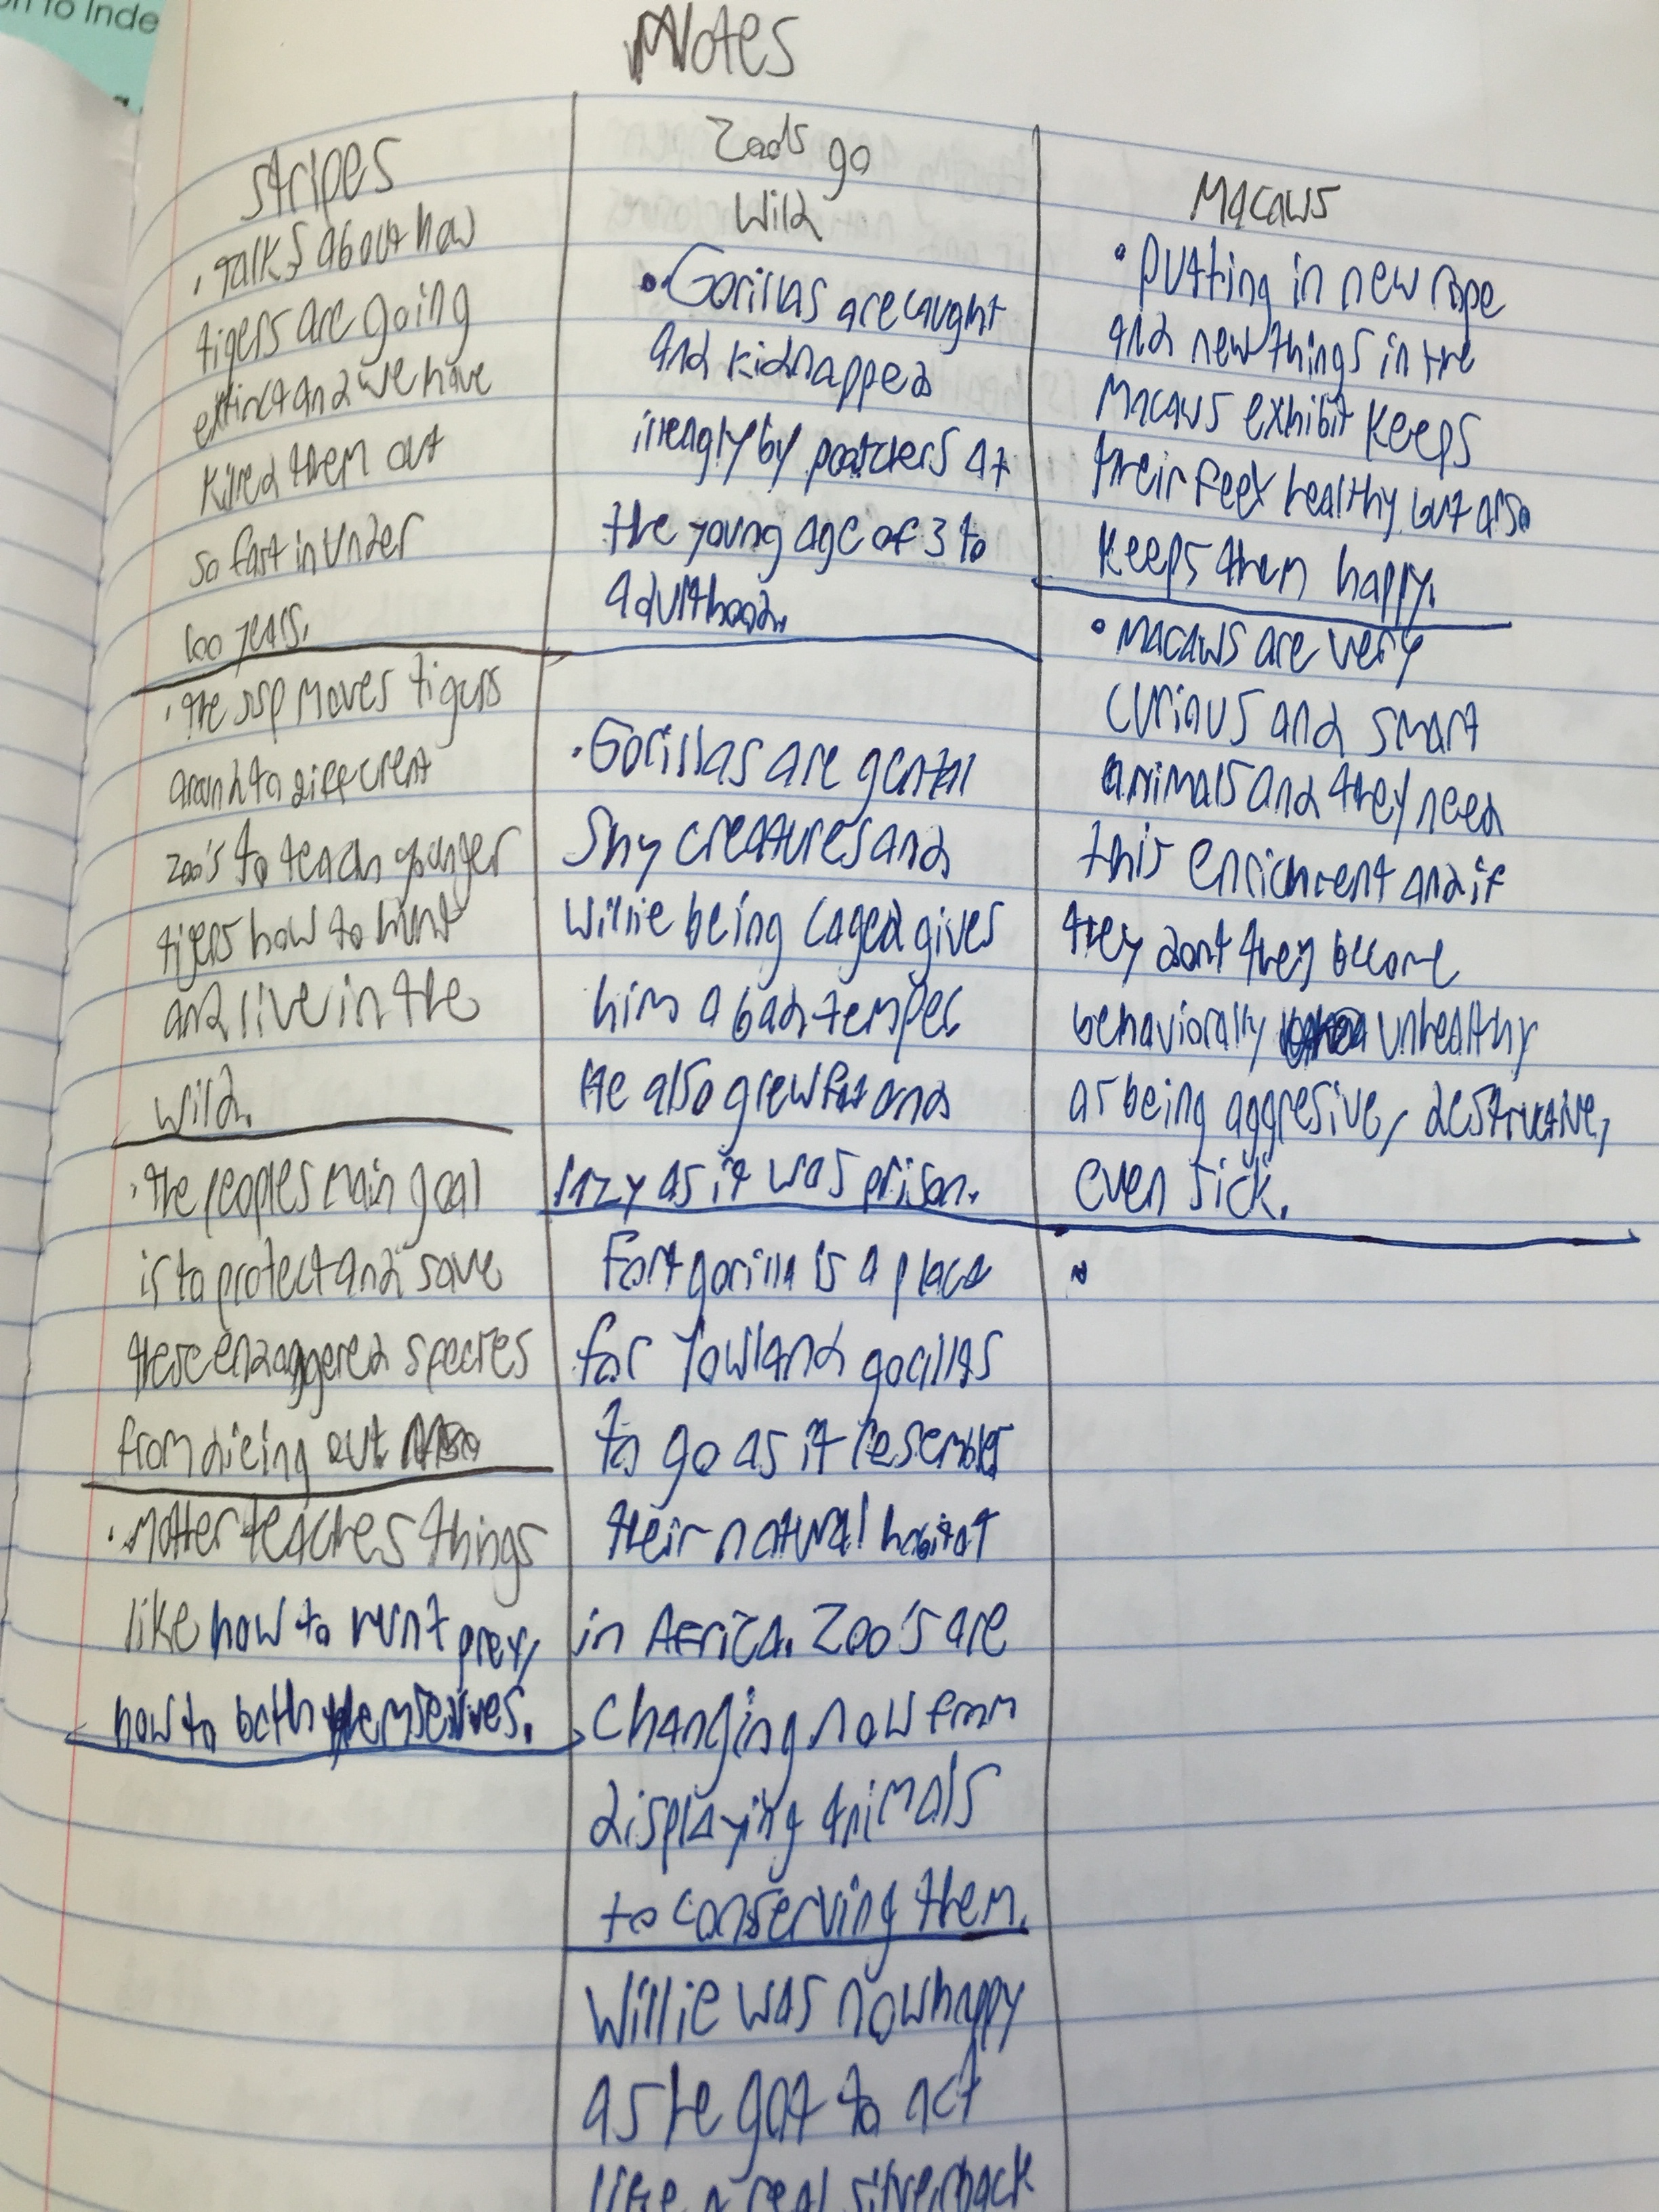 on to Inde
Notes
Stripes
• Talks about how
tigers are going
extinct and we have
killed them out
so fast in under
100 years.
• The SSP moves tigers
around to different
zoo's to teach younger
tigers how to hunt
and live in the
wild.
• The peoples main goal
is to protect and save
these endaggered species
from dieing out
• Motter teaches things
like how to hunt prey,
how to bath themselves.
Zoo's go
Wild
• Gorillas are caught
and kidnapped
by poatchers at
the young age of 3 to
adulthood.
• Gorillas are gental
shy creatures and
Willie being caged gives
him a bad temper
He also grew fat and
lazy as it was prison.
Fort gorilla is a place
for lowland gorillas
to go as it resembles
their natural habitat
in Africa. Zoo's are
changing now from
displaying animals
to conserving them.
Willie was now happy
as he got to act
like a real silverback
Macaws
• Putting in new rope
and new things in the
Macaws exhibit keeps
their feet healthy but also
keeps them happy.
• Macaws are very
curious and smart
animals and they need
this enrichment and if
they dont they become
behaviorally unhealthy
as being aggresive, destructive,
even sick.
•